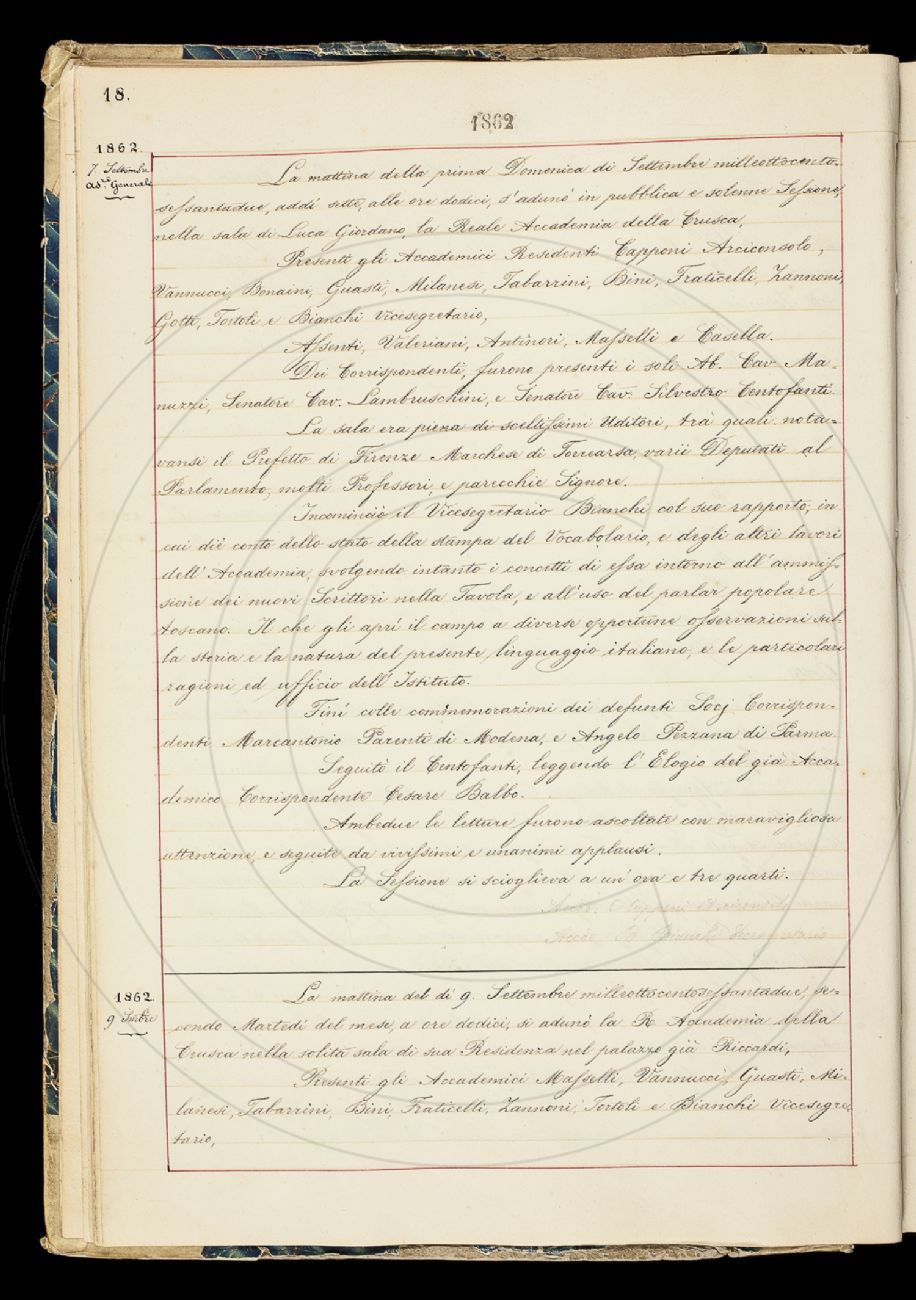 18.
1862
1862.
7. Settembre
Generale
La mattina della prima Domenica di Settembre milleottocento-
sessantadue, addì sette, alle ore dodici, s'adunò in pubblica e solenne Sessione,
nella sala di Luca Giordano, la Reale Accademia della Crusca,
Presenti gli Accademici Residenti Capponi Arciconsolo,
Vannucci, Bonaini, Guasti, Milanesi, Tabarrini, Bini, Fraticelli, Zannoni,
Gotti, Tortoli e Bianchi Vicesegretario,
Assenti, Valeriani, Antinori, Masselli e Casella.
Dei Corrispondenti, furono presenti i soli Ab. Cav. Ma-
nuzzi, Senatore Cav. Lambruschini, e Senatore Cav. Silvestro Centofanti.
La sala era piena di sceltissimi Uditori, trà quali nota=
vansi il Prefetto di Firenze Marchese di Torrearsa, varii Deputati al
Parlamento, molti Professori, e parecchie Signore.
Incominciò il Vicesegretario Bianchi col suo rapporto, in
cui diè conto dello stato della stampa del Vocabolario, e degli altri lavori
dell'Accademia, svolgendo intanto i concetti di essa intorno all'ammis-
sione dei nuovi Scrittori nella Tavola, e all'uso del parlar popolare
toscano. Il che gli aprì il campo a diverse opportune osservazioni sul-
la storia e la natura del presente linguaggio italiano, e le particolari
ragioni ed ufficio dell'Istituto.
Finì colle commemorazioni dei defunti Socj Corrispon-
denti Marcantonio Parenti di Modena, e Angelo Pezzana di Parma.
Seguitò il Centofanti, leggendo l'Elogio del già Acca-
demico Corrispondente Cesare Balbo.
Ambedue le letture furono ascoltate con maravigliosa
attenzione, e seguite da vivissimi e unanimi applausi.
La Sessione si scioglieva a un'ora e tre quarti.
Capponi Arciconsolo
B. Bianchi Vicesegretario
1862.
9 Settbre
La mattina del dì 9. Settembre milleottocentosessantadue, se-
condo Martedì del mese, a ore dodici, si adunò la R. Accademia della
Crusca nella solita sala di sua Residenza nel palazzo già Riccardi,
Presenti gli Accademici Masselli, Vannucci, Guasti, Mi-
lanesi, Tabarrini, Bini, Fraticelli, Zannoni, Tortoli e Bianchi Vicesegre-
tario,